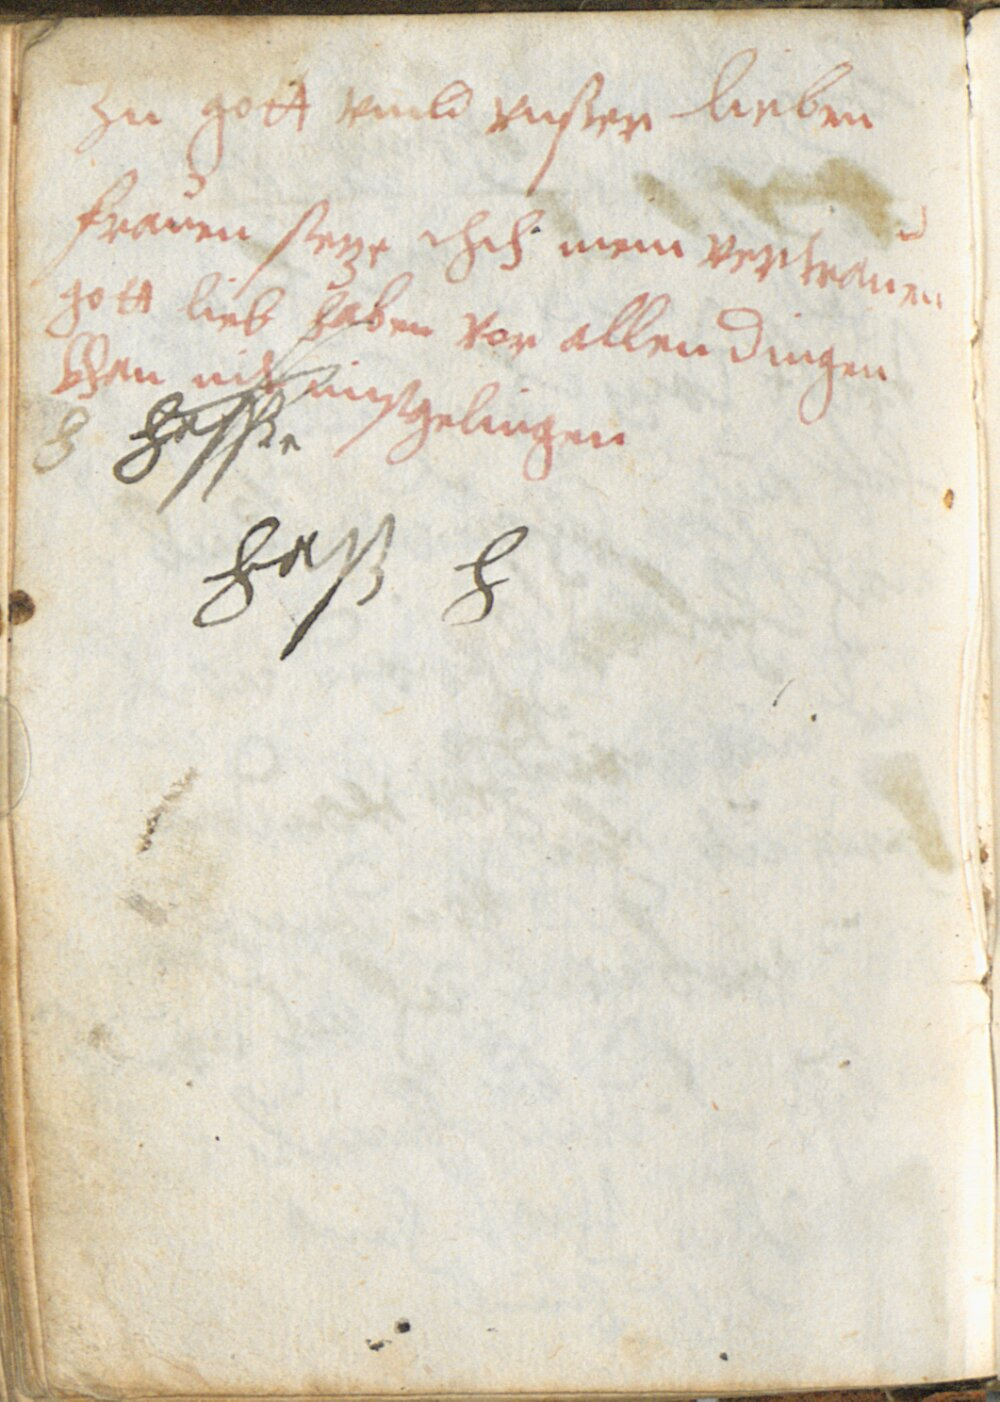 Zu gott vnnd vnßer lieben
frauen setze ich mein vertrauen
gott lieb haben vor allen dingen
kan nich mißgelingen
H
haß h